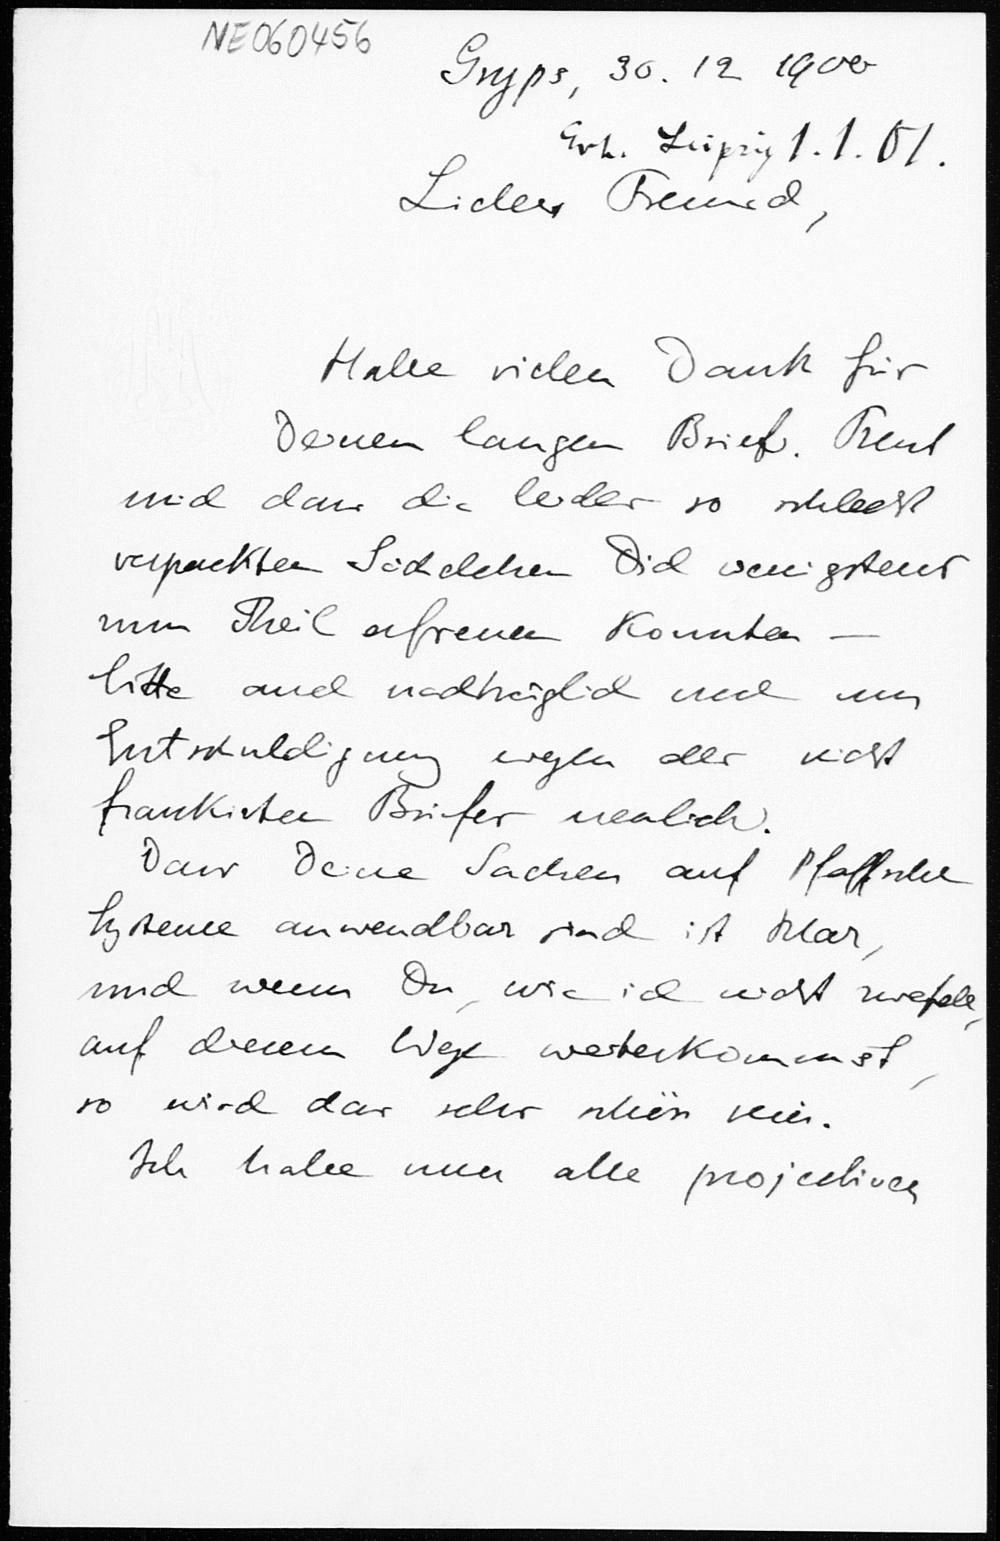 NE060456
Gryps, 30. 12 1900
Erh. Leipzig 1.1.01.
Lieber Freund,
Habe vielen Dank für
Deinen langen Brief. Freut
mich dass die leider so schlecht
verpackten Sächelchen Dich wenigstens
zum Theil erfreuen konnten —
bitte auch nachträglich noch um
Entschuldigung wegen des nicht
frankirten Briefes neulich.
Dass Deine Sachen auf Pfaffsche
Systeme anwendbar sind ist klar,
und wenn Du, wie ich nicht zweifele,
auf diesem Wege weiterkommst,
so wird das sehr schön sein.
Ich habe nun alle projectiven